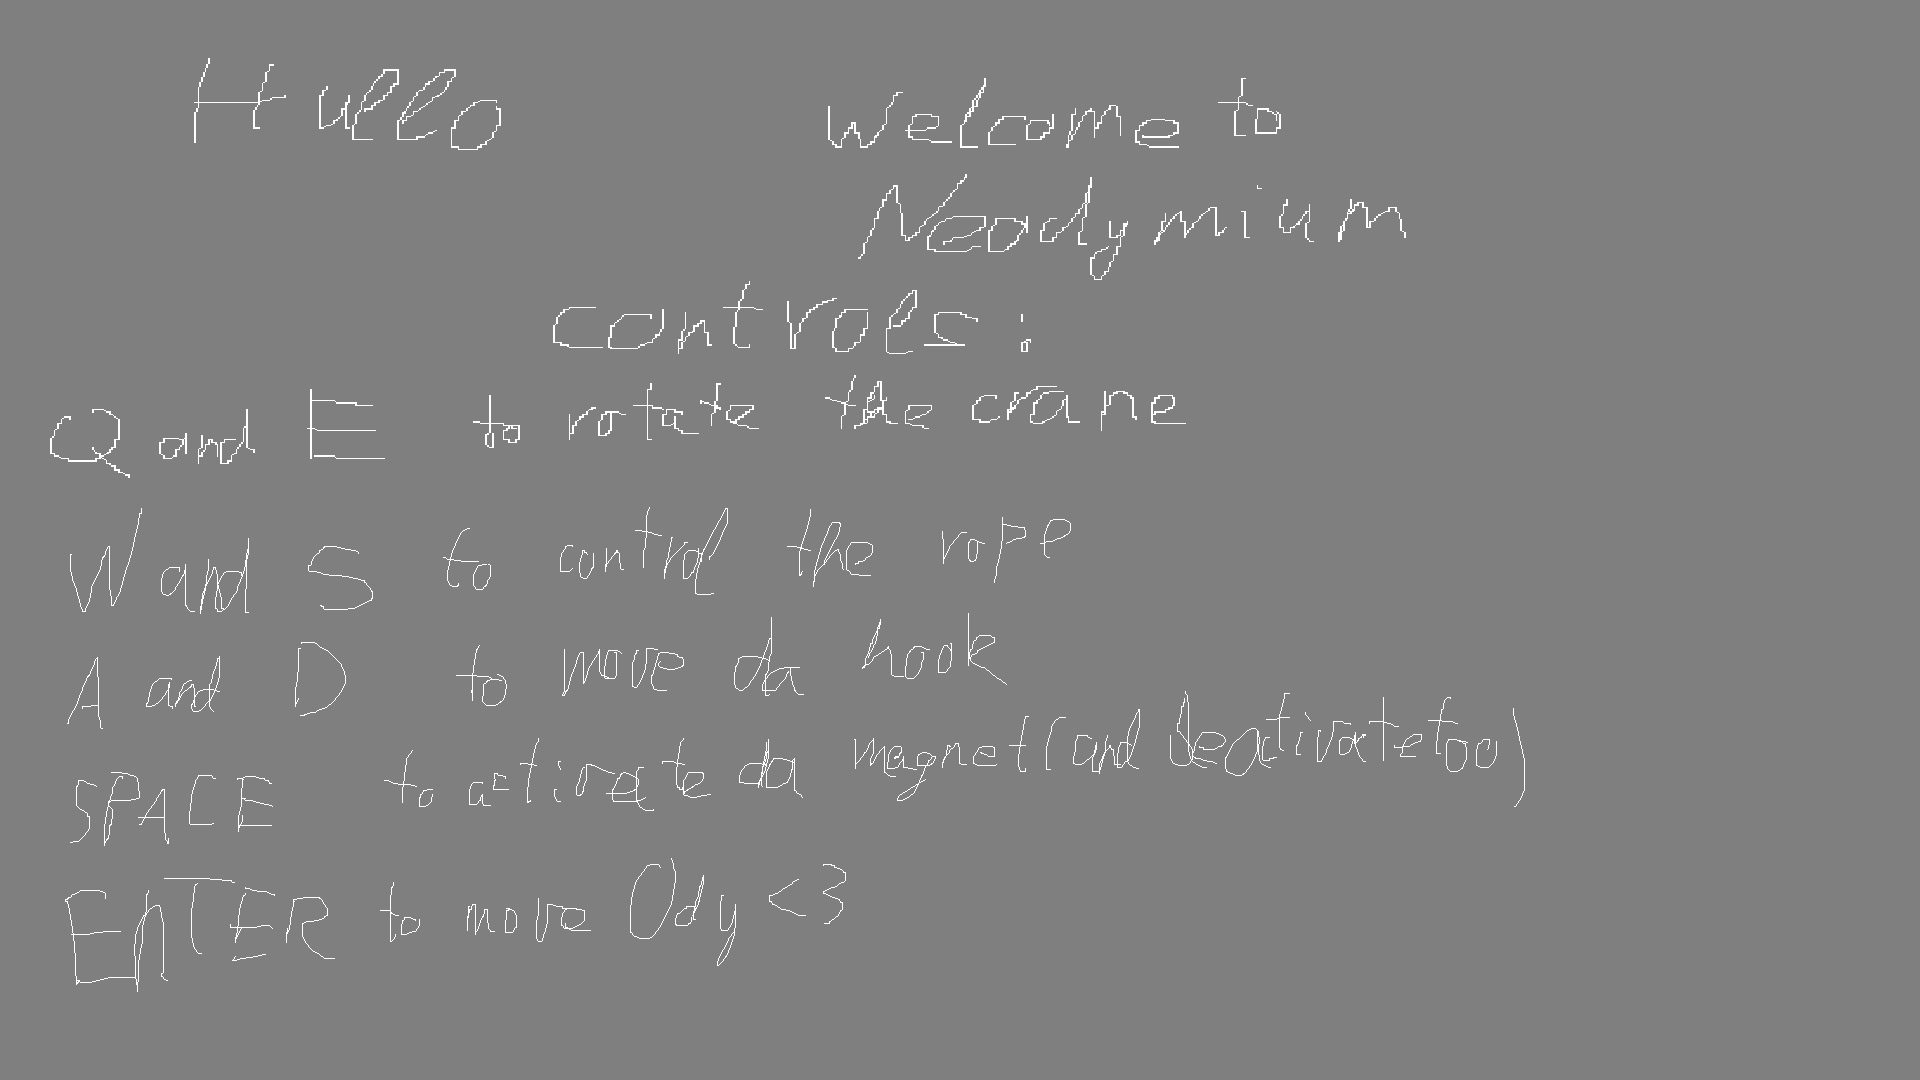 Hullo
Welcome to
Neodymium
controls:
Q and E to rotate the crane
W and S to control the rope
A and D to move da hook
SPACE to activate da magnet (and deactivate too)
EnTER to move Ody <3